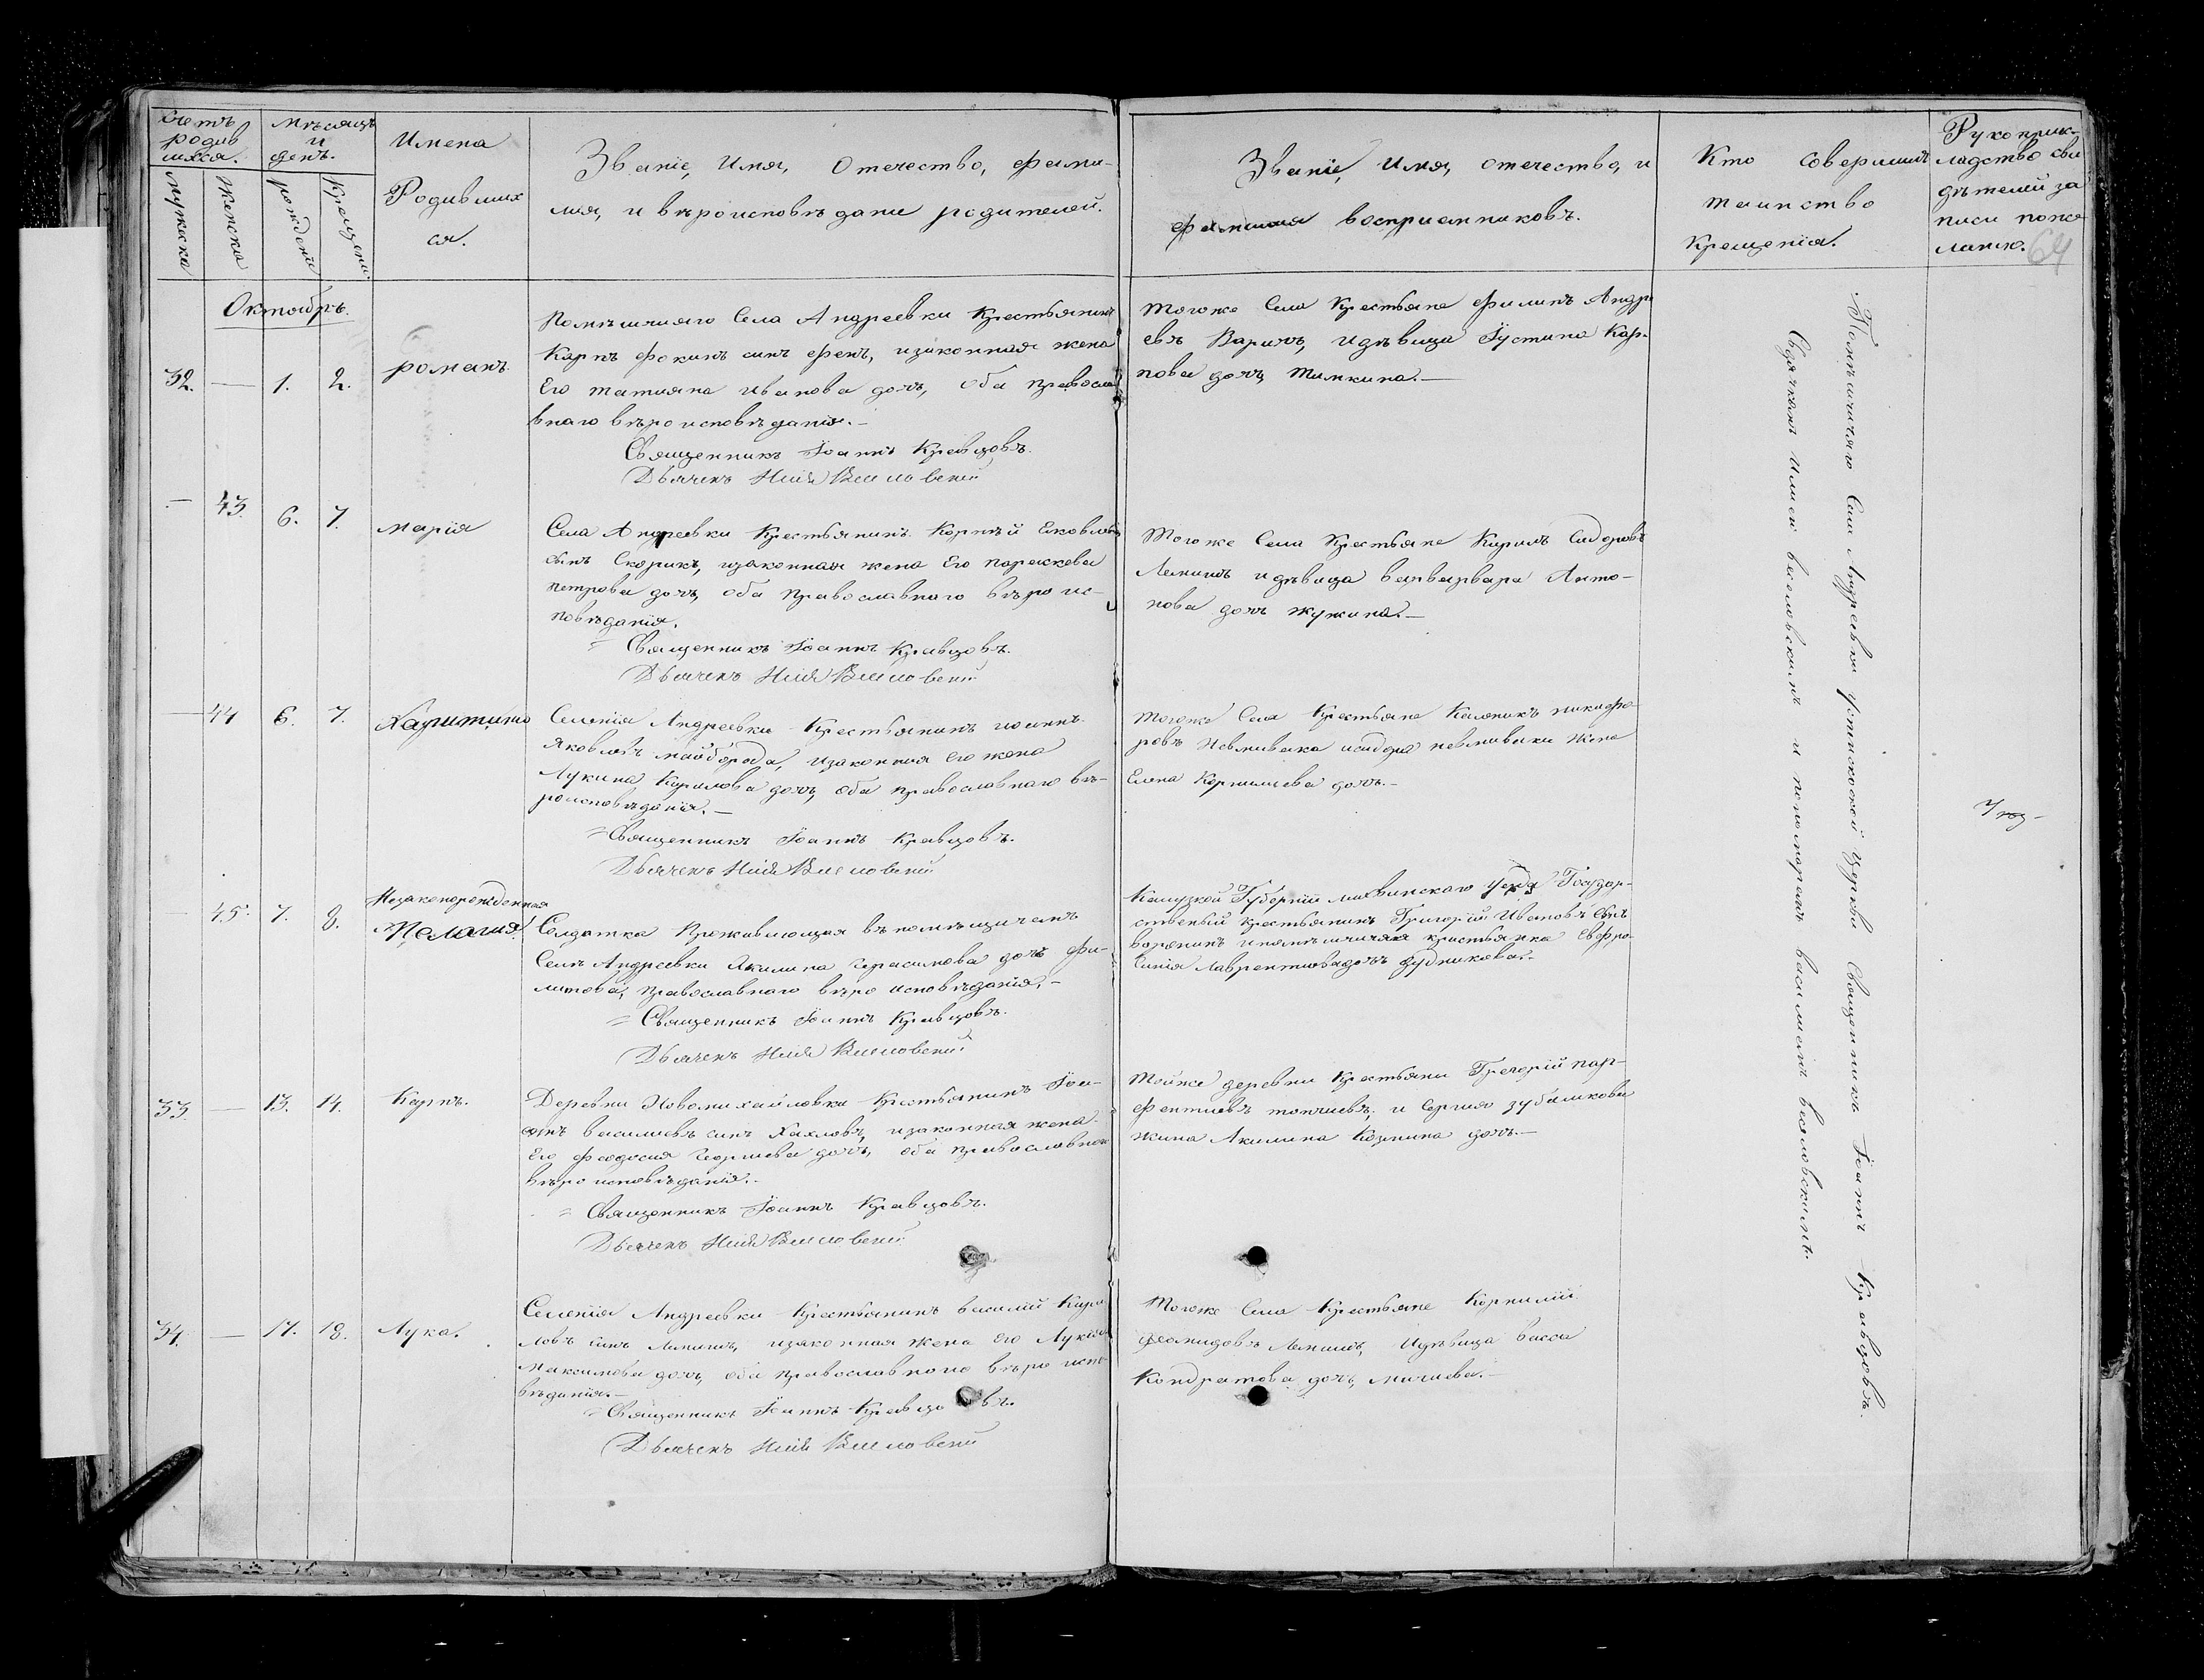 Счетъ
родив
шихся.
Мѣсяцъ
и
день.
Имена
Родивших
ся.
Званіе, Имя, Отечество, фами-
лія, и вѣроисповѣдание родителей.
Званіе, Имя, отечество, и
фамилия восприемниковъ.
Кто совершилъ
таинство
крещенія.
Рукоприк-
ладство сви
дѣтелей за
писи по же
ланію.
64
мужеска
Женска
рожденія
крещенія.
Октябрь.
32. — 1. 2. романъ.
Помѣщичяго Села Андреевки Крестьянинъ
Карпъ Фокинъ сынъ, изаконная жена
Его татияна иванова дочь, оба православ
внаго вѣроисповѣданія.—
Священникъ Іоаннъ Кравцовъ.
Дьячекъ
тогоже Села Крестьяне филипъ Андре
евъ Варичъ, идѣвица Іустина Кар-
пова дочь, тимкина.—
— 43. 6. 7. марія
Села Андреевки Крестьянинъ Корнѣй Яковлевъ
сынъ Скорикъ, изаконная жена Его параскева
петрова дочь, оба православнаго вѣроис-
повѣданія.
= Священникъ Іоаннъ Кравцовъ.
Дьячекъ
тогоже Села Крестьяне Кирилъ Сидоровъ
идѣвица варвара Анто-
нова дочь жукина.—
— 44 6. 7. Харитина
Селенія Андреевки Крестьянинъ иоаннъ
Яковлевъ майборода, изаконная его жена
Лукина Кирилова дочь, оба православнаго вѣ-
роисповѣданія.—
= Священникъ Іоаннъ Кравцовъ.
Дьячекъ
тогоже Села Крестьяне Каленикъ никифо-
ровъ невливака исидора невливаки жена
Елена Корнильева дочь.—
— 45. 7. 8. Незаконорожденная
Пелагия.
Солдатка Проживающая въ помѣщичемъ
Селѣ Андреевки Акилина Герасимова дочь фи-
липова, православнаго вѣроисповѣданія.—
= Священникъ Іоаннъ Кравцовъ.
Дьячекъ
Калузкой Губерніи лихвинскаго уезда Государ-
ственый крестьянинъ Григорій Ивановъ сынъ
воронинъ ипомѣщичяя кристьянка Евфро-
синія Лаврентиевадочь дудникова.—
33. — 13. 14. Карпъ.
Деревни Новомихайловки Крестьянинъ Іоа-
нъ василиевъ сынъ Хахловъ, изаконная жена
Его феодосия Георгиева дочь, оба православнаго
вѣроисповѣданія.—
= Священникъ Іоаннъ Кравцовъ.
Дьячекъ
тойже деревни Крестьяни Грегорій пар-
фентиевъ и Сергия зубаликова
жина Акилина Козмина дочь.—
34. — 17. 18. Лука.
Селенія Андреевки Крестьянинъ василій Кири
ловъ сынъ изаконная жена его Лукія
максимова дочь, оба православного вѣро испо
вѣданія.—
= Священникъ Іоаннъ Кравцовъ.
Дьячекъ
тогоже Села Крестьяне Корнилій
идѣвица васса
Кондратова дочь,
Помѣщичяго Села Андреевки успинской церкви Священникъ Іоаннъ Кравцовъ.
Сдячкомъ и пономаремъ василиемъ